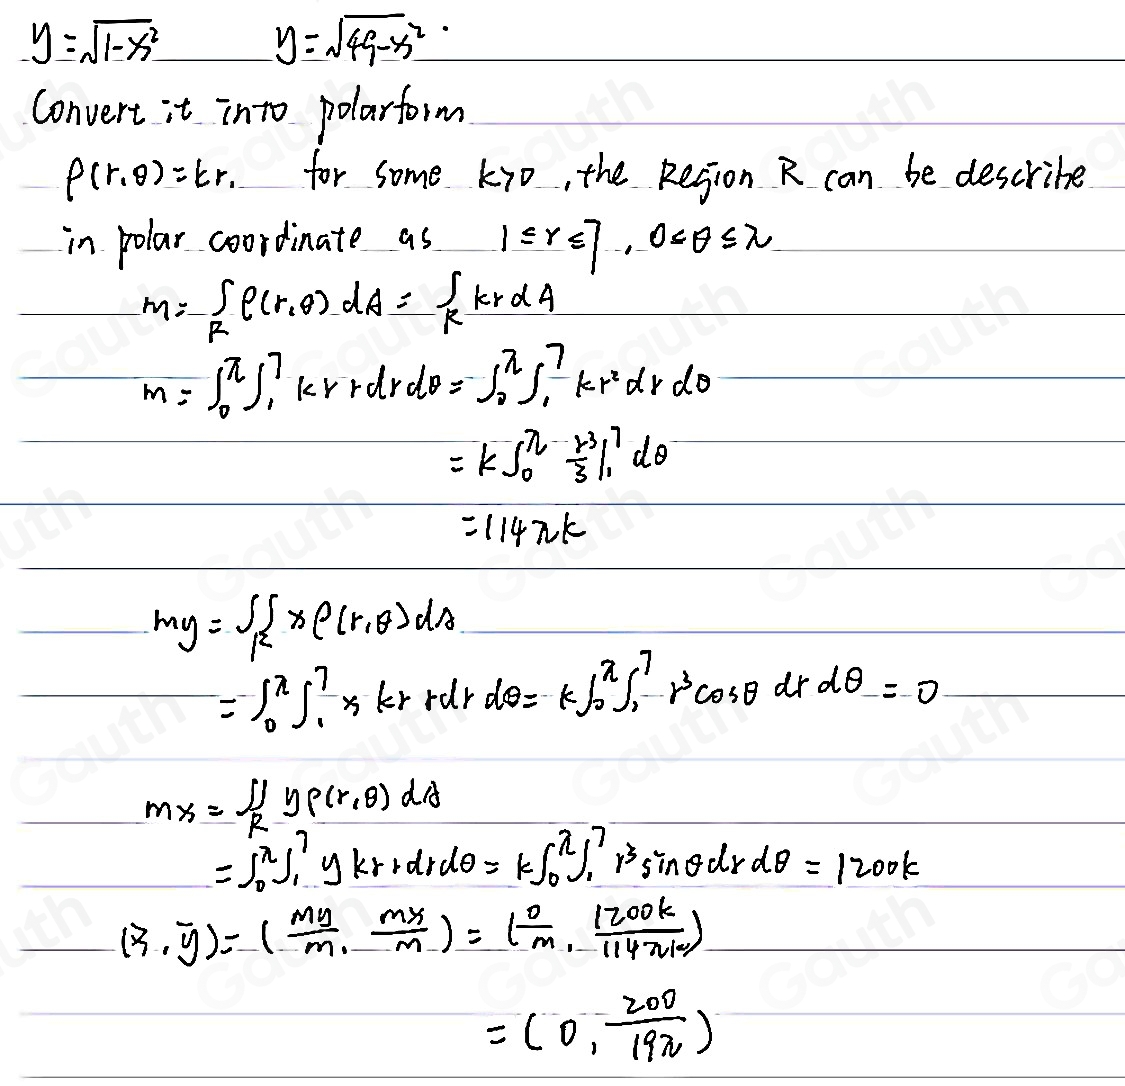 y = √1-x² y = √49-x² .
Convert it into polar form
ρ(r,θ) = kr. for some k>0, the Region R can be describe
in polar coordinate as 1 ≤ r ≤ 7, 0 ≤ θ ≤ π
m = ∫_R ρ(r,θ) dA = ∫_R kr dA
m = ∫₀^π ∫₁⁷ kr r dr dθ = ∫₀^π ∫₁⁷ kr² dr dθ
= k ∫₀^π r³/3 |₁⁷ dθ
= 114πk
my = ∬_R x ρ(r,θ) dA
= ∫₀^π ∫₁⁷ x kr r dr dθ = k ∫₀^π ∫₁⁷ r³ cosθ dr dθ = 0
mx = ∬_R y ρ(r,θ) dA
= ∫₀^π ∫₁⁷ y kr r dr dθ = k ∫₀^π ∫₁⁷ r³ sinθ dr dθ = 1200k
(x̄, ȳ) = (my/m, mx/m) = (0/m, 1200k/114πk)
= (0, 200/19π)